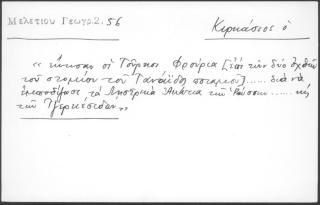 Μελετίου Γεωγρ. 2. 56
Κιρκάσιος ὁ
« ἔκτισαν οἱ Τοῦρκοι Φρούρια [εἰς τὴν δύο ὄχθην
τοῦ στομίου τοῦ Τανάϊδος ποταμοῦ] ...... διὰ νὰ
ἐμποδίζωσι τὰ Ληστρικὰ τῶν Ῥώσσων ...... κὶ
τῶν »